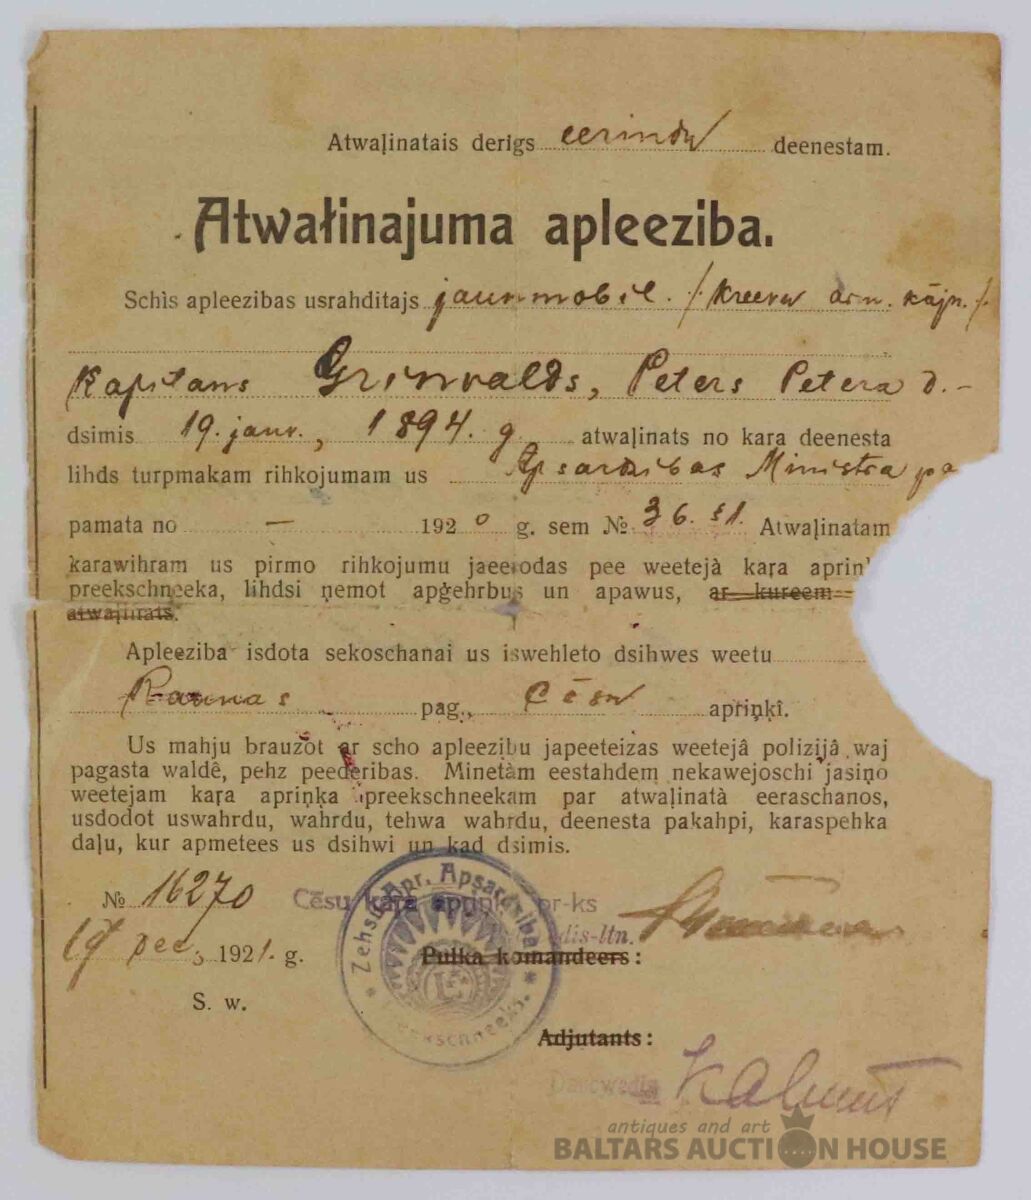 Atwaļinatais derigs eerindu deenestam.
Atwałinajuma apleeziba.
Schis apleezibas usrahditajs jaunmobil. /kreewu arm. kājn./
Kapitans Grinwalds, Peters Petera d.-
dsimis 19. janv., 1894. g. atwaļinats no kara deenesta
lihds turpmakam rihkojumam us Apsardsibas Ministra pa
pamata no — 1920 g. sem № 36. §1. Atwaļinatam
karawihram us pirmo rihkojumu jaeerodas pee weetejà kaŗa apriņķ
preekschneeka, lihdsi ņemot apģehrbus un apawus, ar kureem
atwaļinats.
Apleeziba isdota sekoschanai us iswehleto dsihwes weetu
Raunas pag., Cēsu apriņķî.
Us mahju brauzot ar scho apleezibu japeeteizas weetejâ polizijâ waj
pagasta waldê, pehz peederibas. Minetàm eestahdem nekawejoschi jasiņo
weetejam kaŗa apriņķa preekschneekam par atwaļinatà eeraschanos,
usdodot uswahrdu, wahrdu, tehwa wahrdu, deenesta pakahpi, karaspehka
daļu, kur apmetees us dsihwi un kad dsimis.
№ 16270 Cēsu kara apriņķ pr-ks
19 dec 1921. g. dis-ltn.
Pulka komandeers:
Zehsu Apr. Apsardsibas
S. w.
Adjutants:
Darwedis Kalniņš
antiques and art
BALTARS AUCTION HOUSE